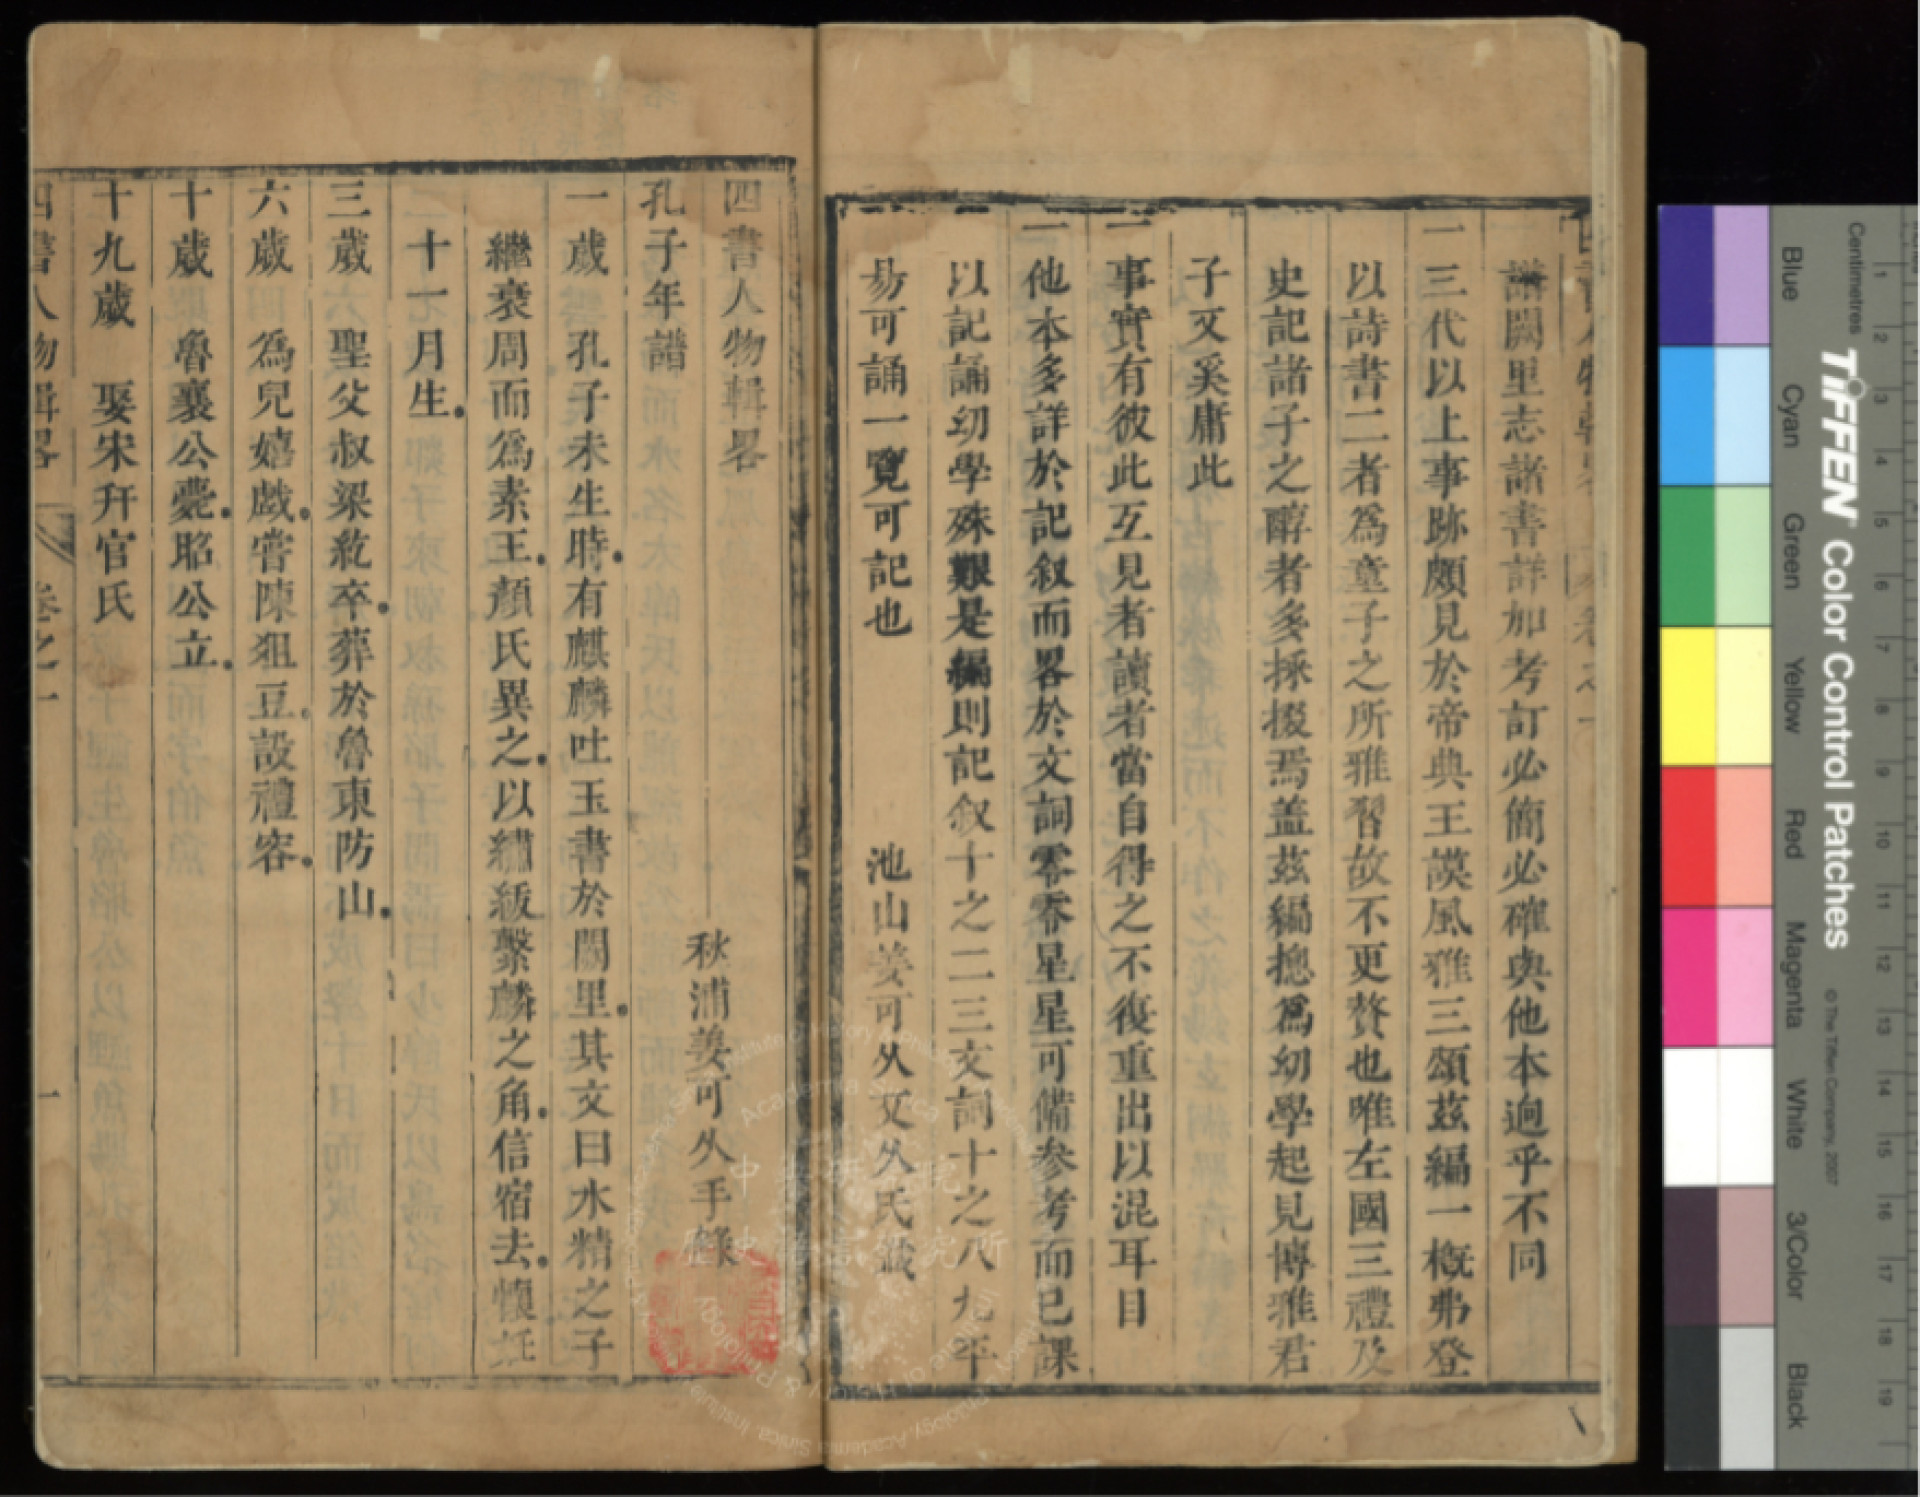 譜闕里志諸書詳加考訂必簡必確與他本逈乎不同
一三代以上事跡頗見於帝典王謨風雅三頌茲編一槪弗登
以詩書二者爲童子之所雅習故不更贅也唯左國三禮及
史記諸子之醇者多採掇焉盖茲編揔爲幼學起見博雅君
子又奚庸此
一事實有彼此互見者讀者當自得之不復重出以混耳目
一他本多詳於記叙而畧於文詞零零星星可備參考而已課
以記誦幼學殊艱是編則記叙十之二三文詞十之八九平
易可誦一覽可記也
池山姜可久文久氏識
四書人物輯畧
秋浦姜可久手錄
孔子年譜
一歲 孔子未生時有麒麟吐玉書於闕里其文曰水精之子
繼衰周而爲素王顏氏異之以繡紱繫麟之角信宿去懷妊
十一月生
三歲 聖父叔梁紇卒葬於魯東防山
六歲 爲兒嬉戲嘗陳俎豆設禮容
十歲 魯襄公薨昭公立
十九歲 娶宋幵官氏
四書人物輯畧 卷之一 一
Blue
Cyan
Green
Yellow
Red
Magenta
White
3/Color
Black
TIFFEN Color Control Patches
© The Tiffen Company, 2007
Centimetres
1 2 3 4 5 6 7 8 9 10 11 12 13 14 15 16 17 18 19